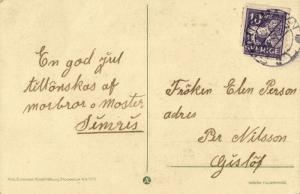 En god jul
tillönskas af
morbror o Moster
Simris
10
SVERIGE
Fröken Elen Person
adres
Br Nilsson
Gislöf